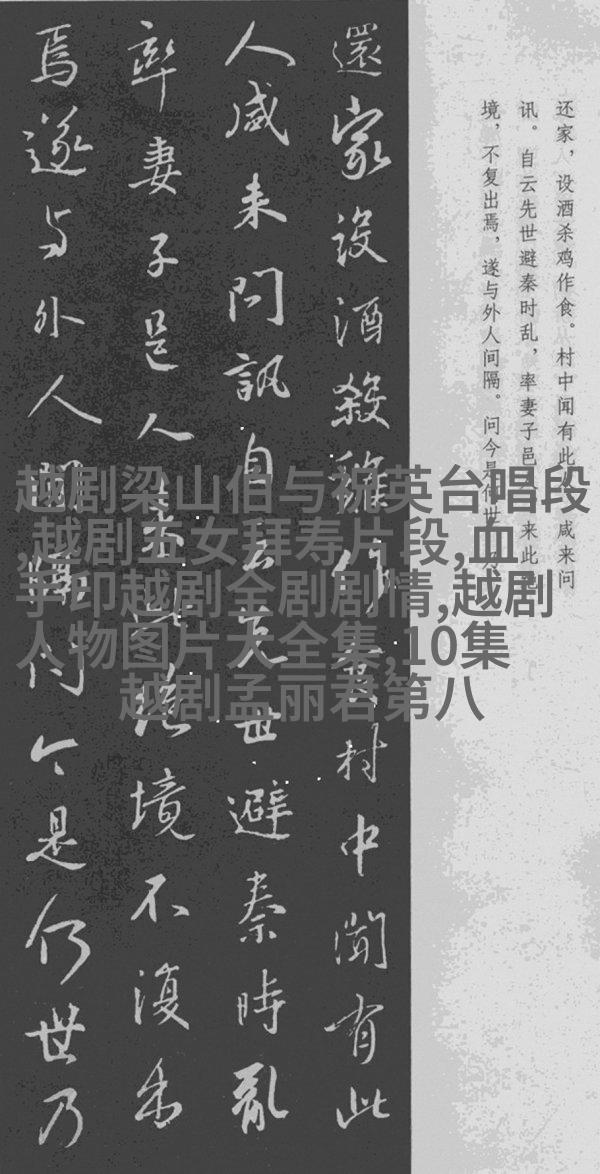 还家，设酒杀鸡作食。村中闻有此咸来问
讯。自云先世避秦时乱，率妻子邑来此
境，不复出焉，遂与外人间隔。问今是何世乃
還家設酒殺雞作食村中聞有此
人咸来問訊自云先世避秦時亂
率妻子邑人来此絶境不復出
焉遂与外人間隔問今是何世乃
越剧梁山伯与祝英台唱段
,越剧五女拜寿片段,血
手印越剧全剧剧情,越剧
人物图片大全集,10集
越剧孟丽君第八